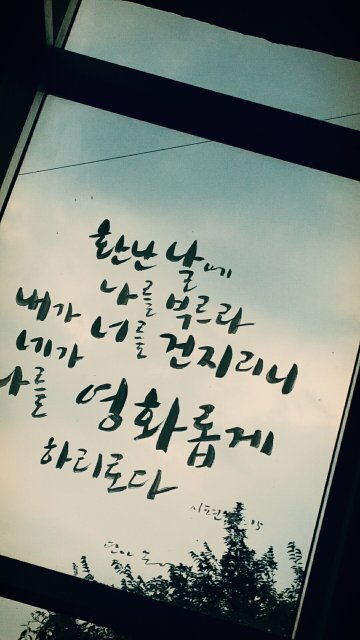 환난 날에
나를 부르라
내가 너를 건지리니
네가
나를 영화롭게
하리로다